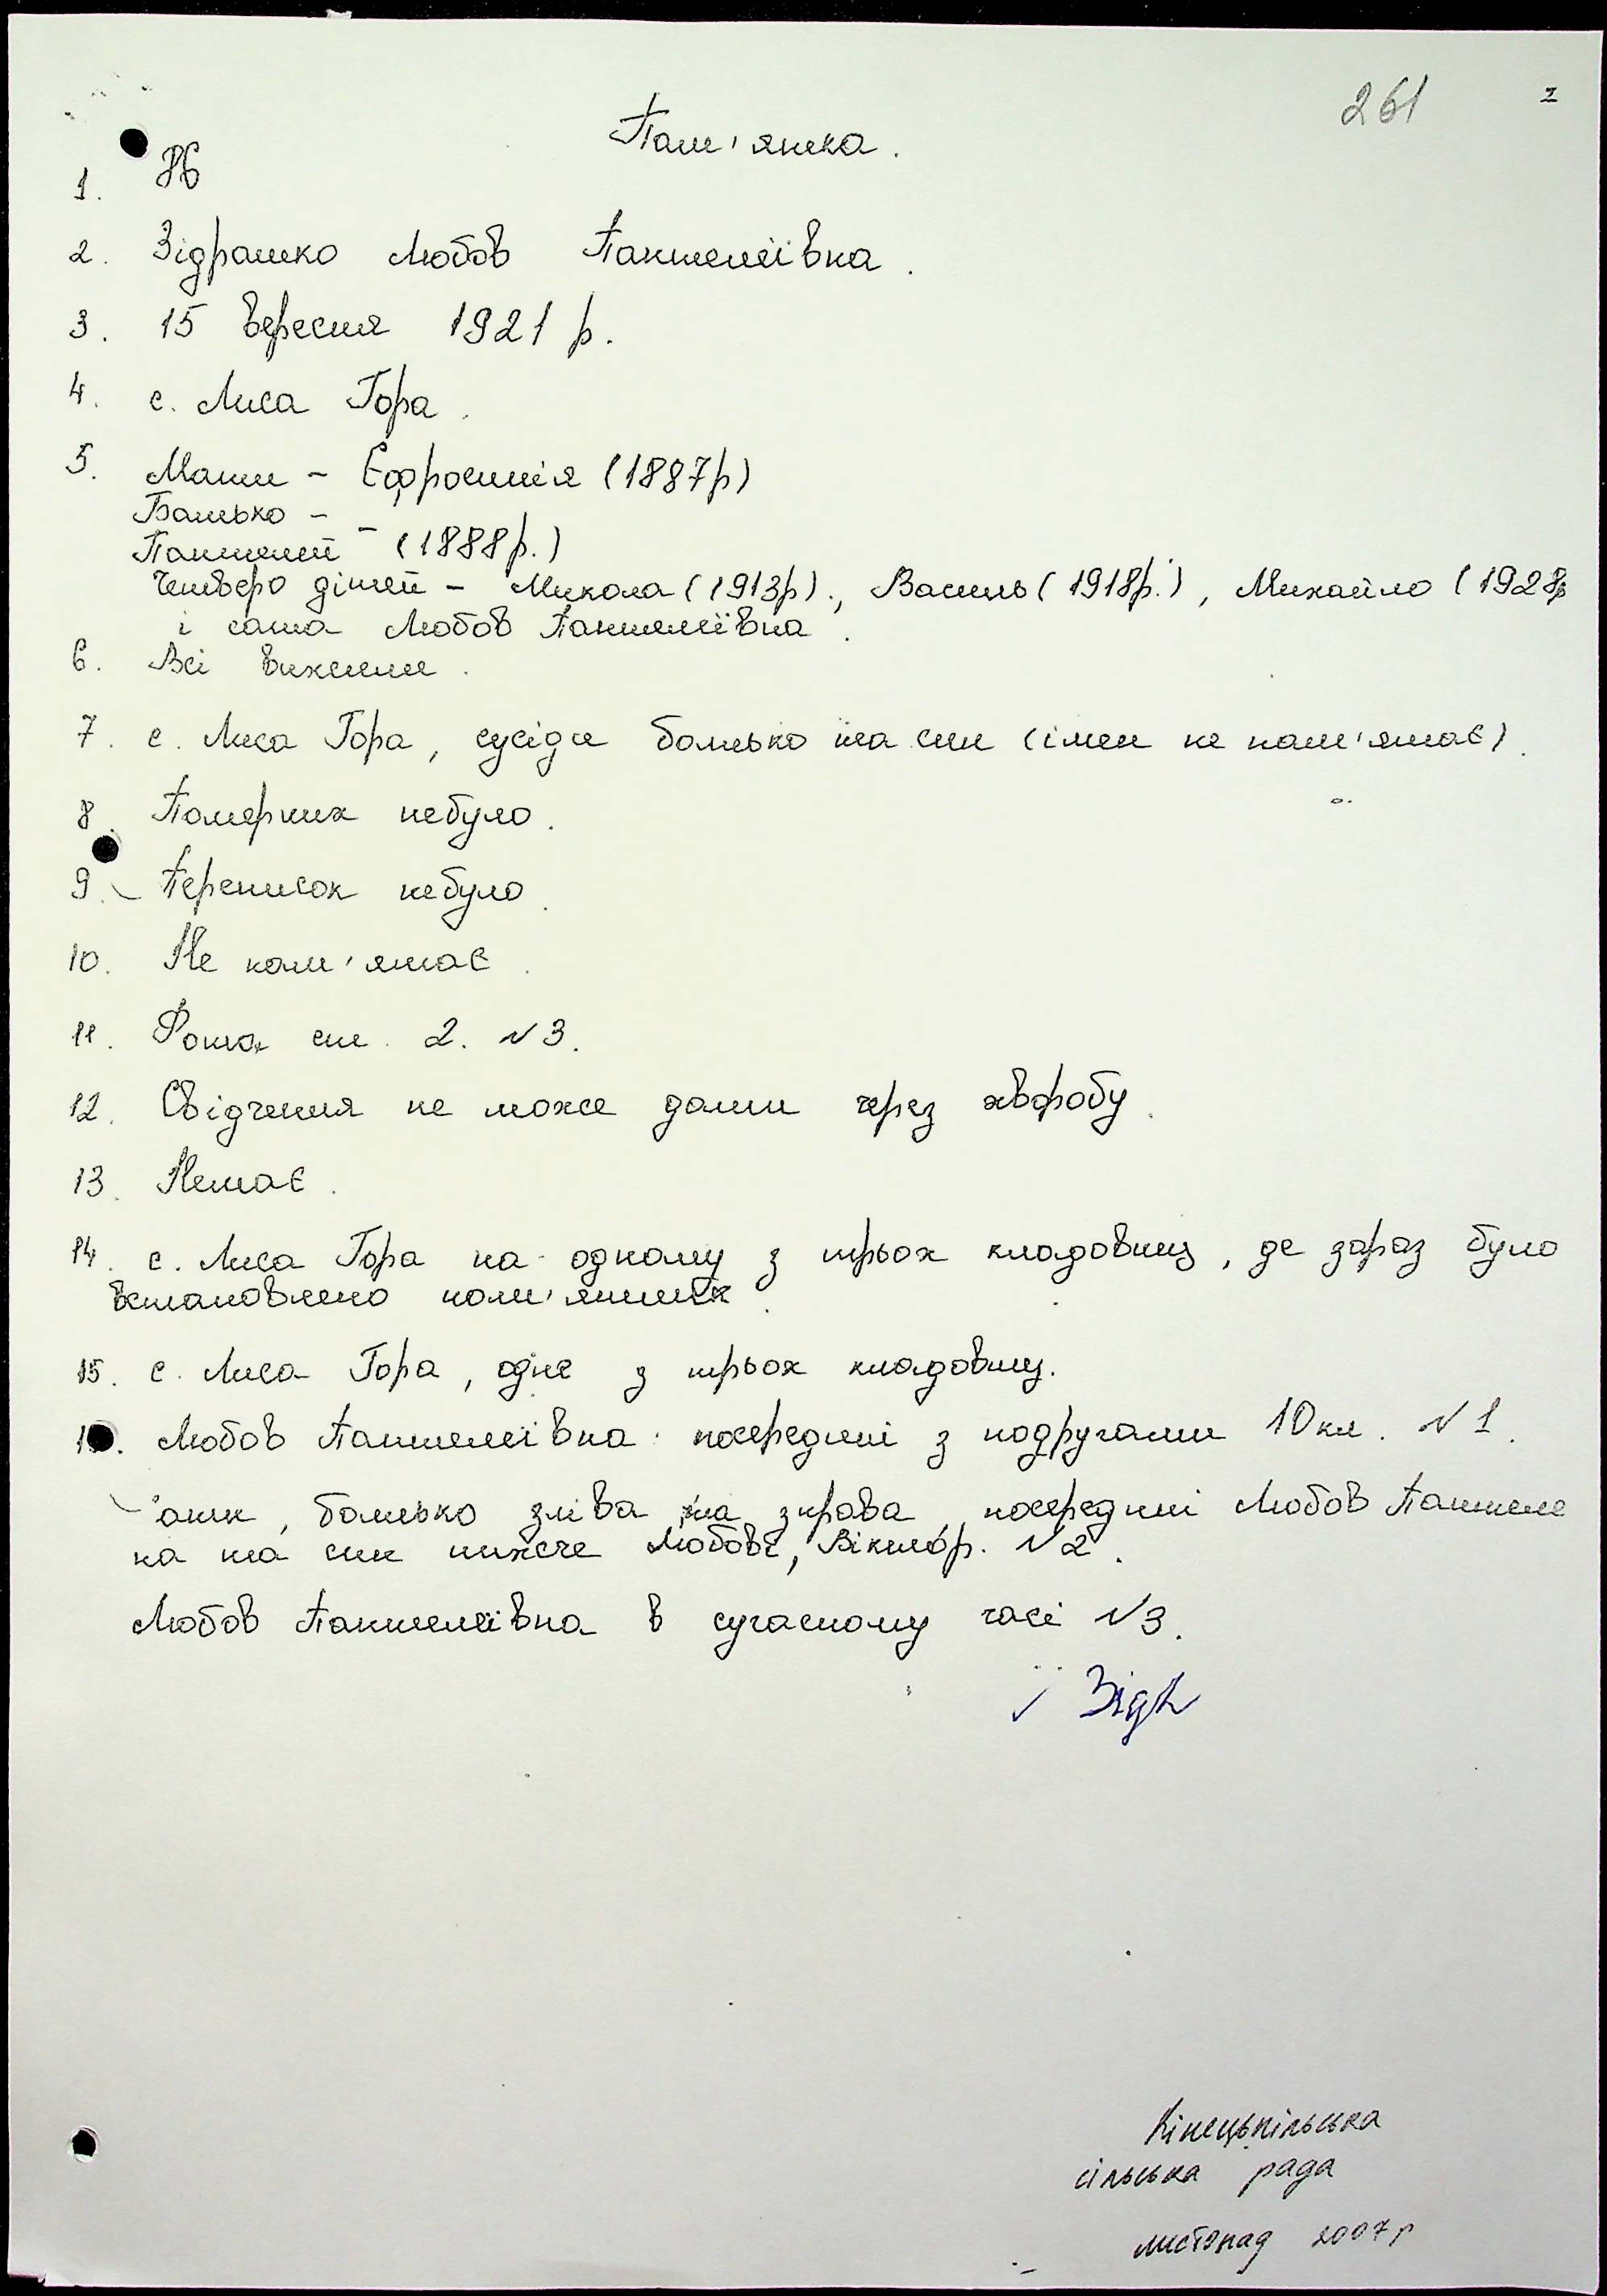 261
Пам'ятка.
1. Ж
2. Зідрашко Любов Пантеліївна.
3. 15 вересня 1921 р.
4. с. Лиса Гора.
5. Мати – Єфросинія (1887р)
Батько –
Пантелей – (1888р.)
Четверо дітей – Микола (1913р)., Василь (1918р.), Михайло (1928р
і сама Любов Пантеліївна.
6. Всі вижили.
7. с. Лиса Гора, сусіди батько та син (імен не пам'ятає).
8. Померших небуло.
9. Переписок небуло.
10. Не пам'ятає.
11. Фото ст. 2. №3.
12. Свідчення не може дати через хворобу.
13. Немає.
14. с. Лиса Гора на одному з трьох кладовищ, де зараз було
встановлено пам'ятник.
15. с. Лиса Гора, одне з трьох кладовищ.
1 . Любов Пантеліївна посередині з подругами 10 кл. №1.
батько зліва та справа, посередині Любов Пантеле
на та син нижче Любові, Віктор. №2.
Любов Пантеліївна в сучасному часі №3.
Кінецьпільська
сільська рада
листопад 2007р